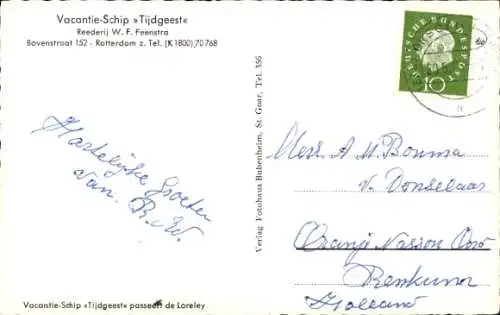 Vacantie-Schip »Tijdgeest«
Reederij W. F. Feenstra
Bovenstraat 152 - Rotterdam z. Tel. (K 1800) 70768
DEUTSCHE BUNDESPOST
10
Hartelijke Groeten
van. R. W.
Verlag Fotohaus Bubenheim, St. Goar, Tel. 356
A M. Bouma
v. Donselaar
Oranje Nassau
Renkum
Holland
Vacantie-Schip »Tijdgeest« passeert de Loreley